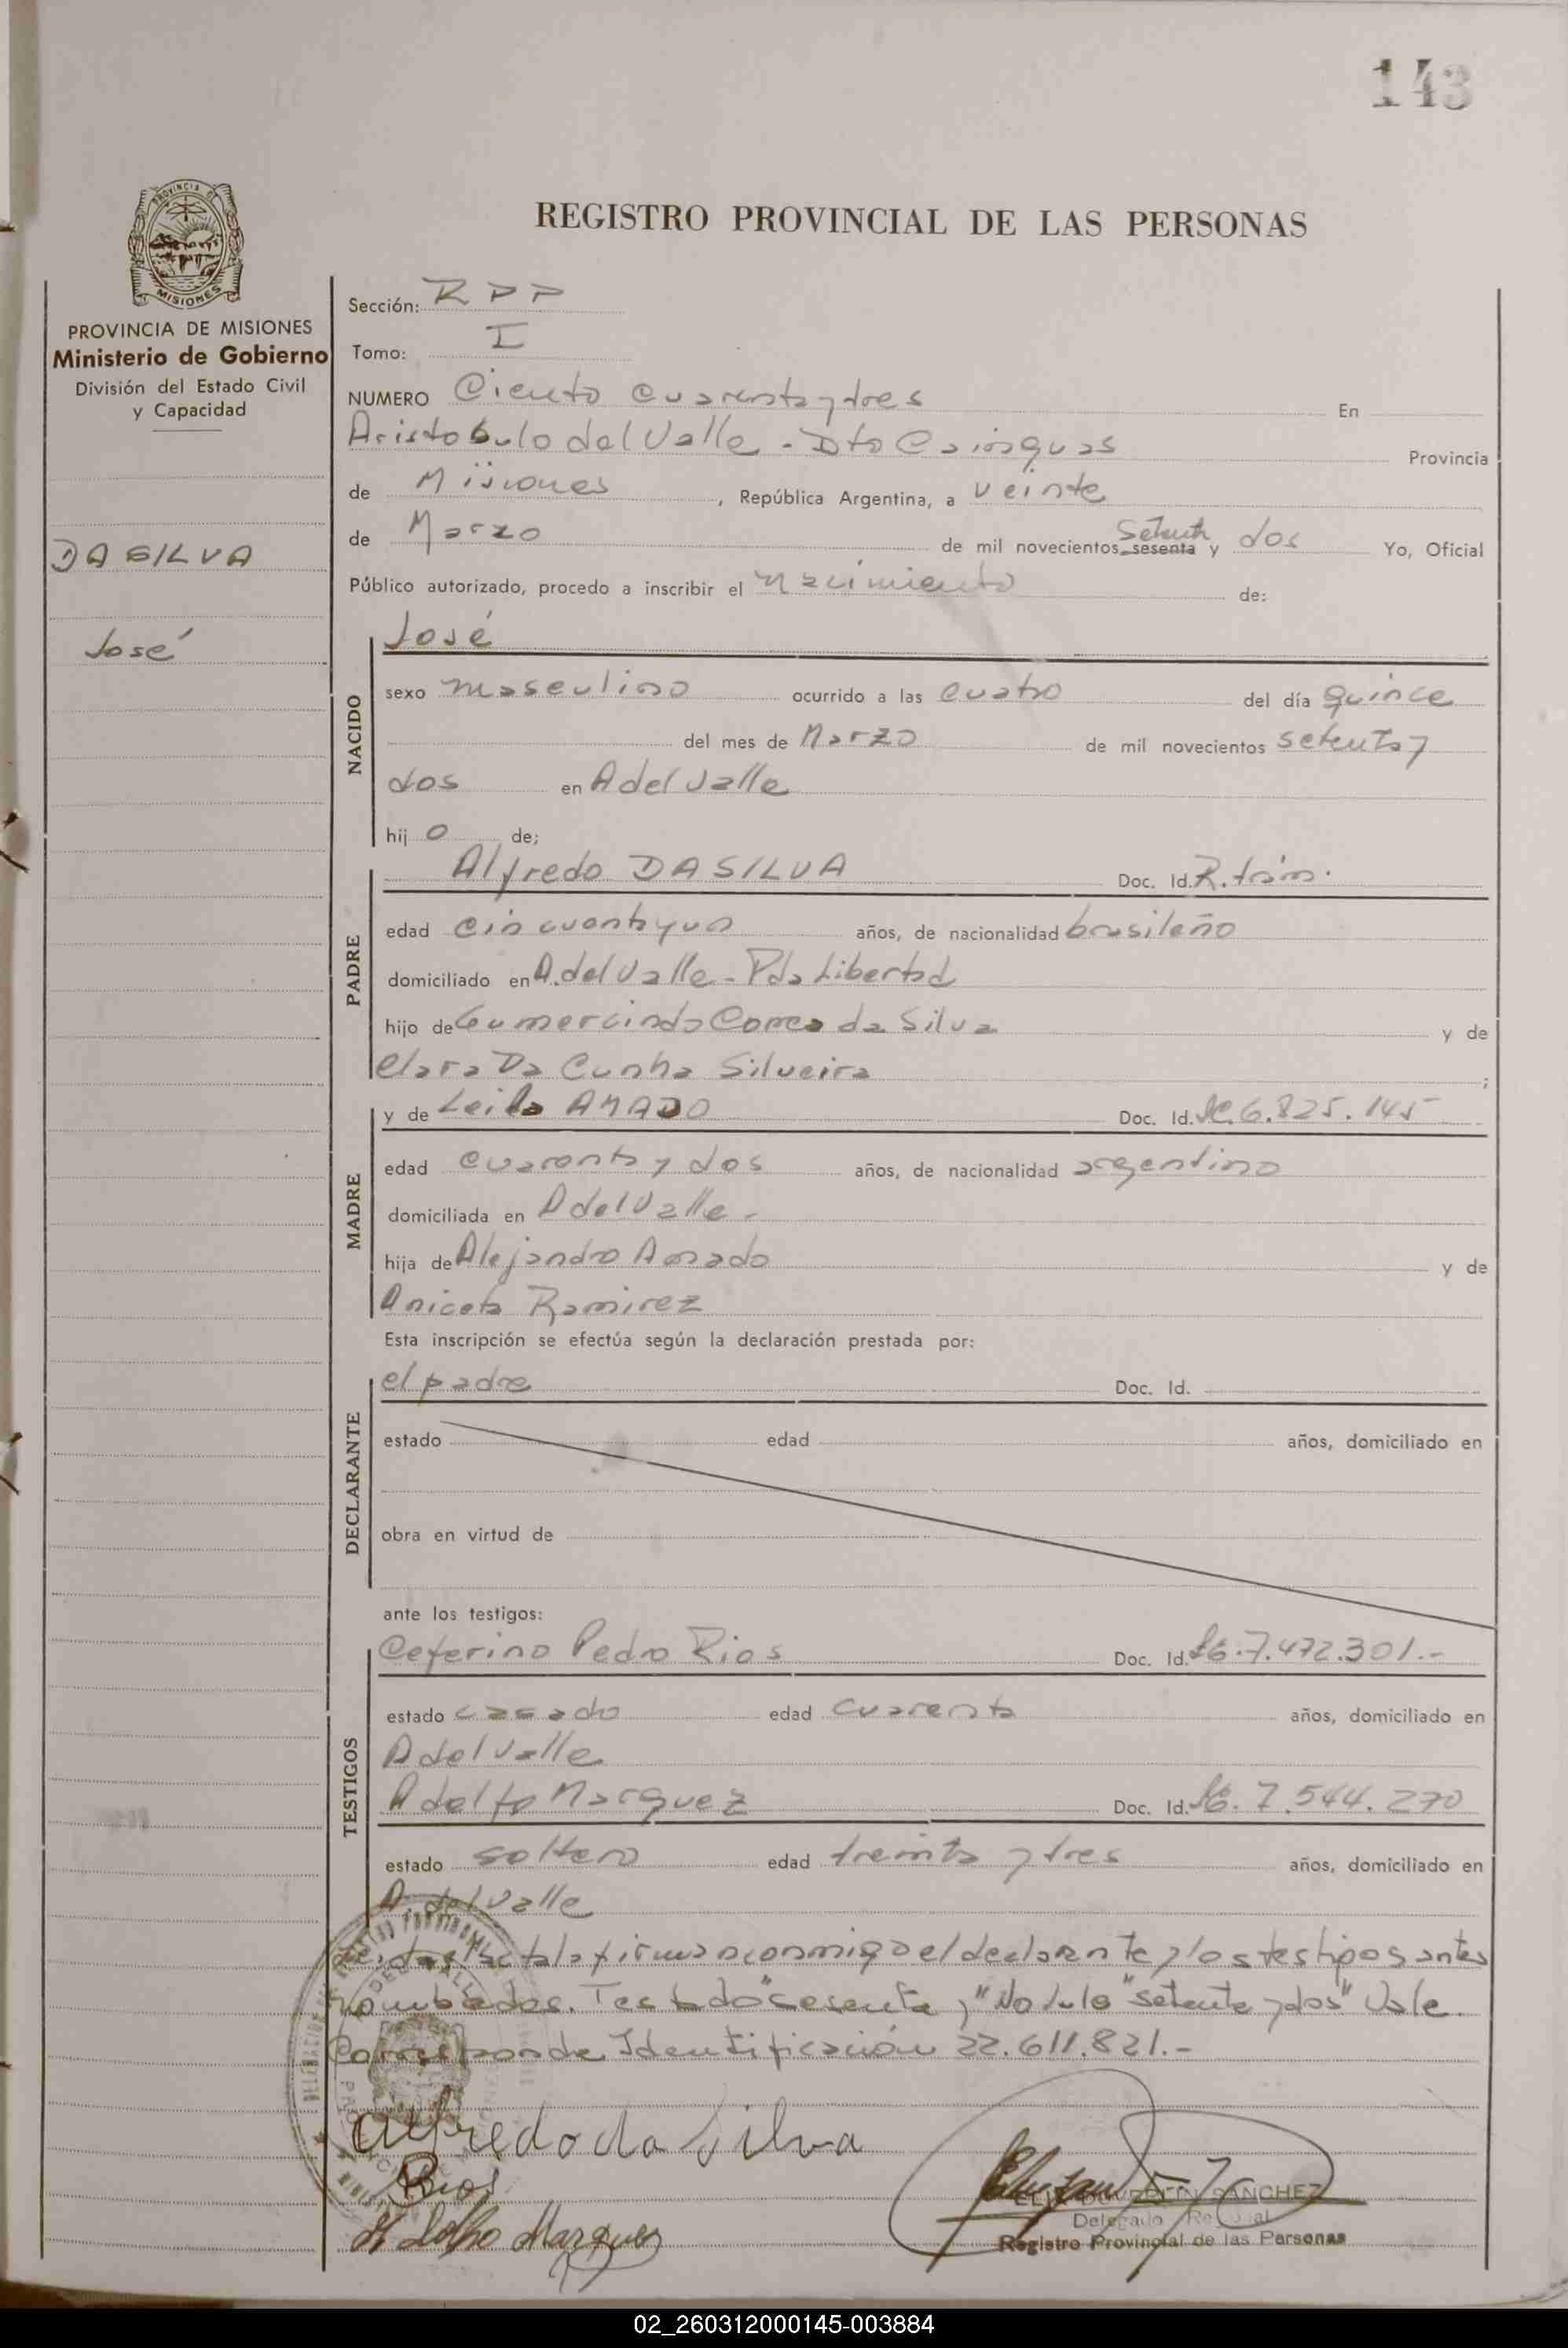 143
REGISTRO PROVINCIAL DE LAS PERSONAS
PROVINCIA DE MISIONES
Ministerio de Gobierno
División del Estado Civil
y Capacidad
DA SILVA
José
Sección: RPP
Tomo: I
NUMERO Ciento cuarenta y tres En
Aristobulo del Valle - Dto Cainguas Provincia
de Misiones, República Argentina, a veinte
de Marzo de mil novecientos sesenta setenta y dos Yo, Oficial
Público autorizado, procedo a inscribir el nacimiento de:
José
NACIDO
sexo masculino ocurrido a las cuatro del día quince
del mes de Marzo de mil novecientos setenta y
dos en A del Valle
hijo de;
PADRE
Alfredo DA SILVA Doc. Id. R. trám.
edad cincuenta y un años, de nacionalidad brasileño
domiciliado en A. del Valle - Pda Libertad
hijo de Gumercindo Correa da Silva y de
Clara Da Cunha Silveira;
MADRE
y de Leila AMADO Doc. Id. LC. 6.825.145
edad cuarenta y dos años, de nacionalidad argentina
domiciliada en A del Valle -
hija de Alejandro Amado y de
Aniceta Ramirez
Esta inscripción se efectúa según la declaración prestada por:
DECLARANTE
el padre Doc. Id.
estado edad años, domiciliado en
obra en virtud de
ante los testigos:
TESTIGOS
Ceferino Pedro Rios Doc. Id. 7.472.301.-
estado casado edad cuarenta años, domiciliado en
A del Valle
Adolfo Marquez Doc. Id. 7.544.270
estado soltero edad treinta y tres años, domiciliado en
A. del Valle
Leida el acta la firman conmigo el declarante y los testigos antes
nombrados. Testado "sesenta" "No vale" "setenta y dos" Vale
Corresponde Identificación 22.611.821.-
Alfredo da Silva
Rios
Adolfo Marquez
SANCHEZ
Delegado
Registro Provincial de las Personas
02_260312000145-003884